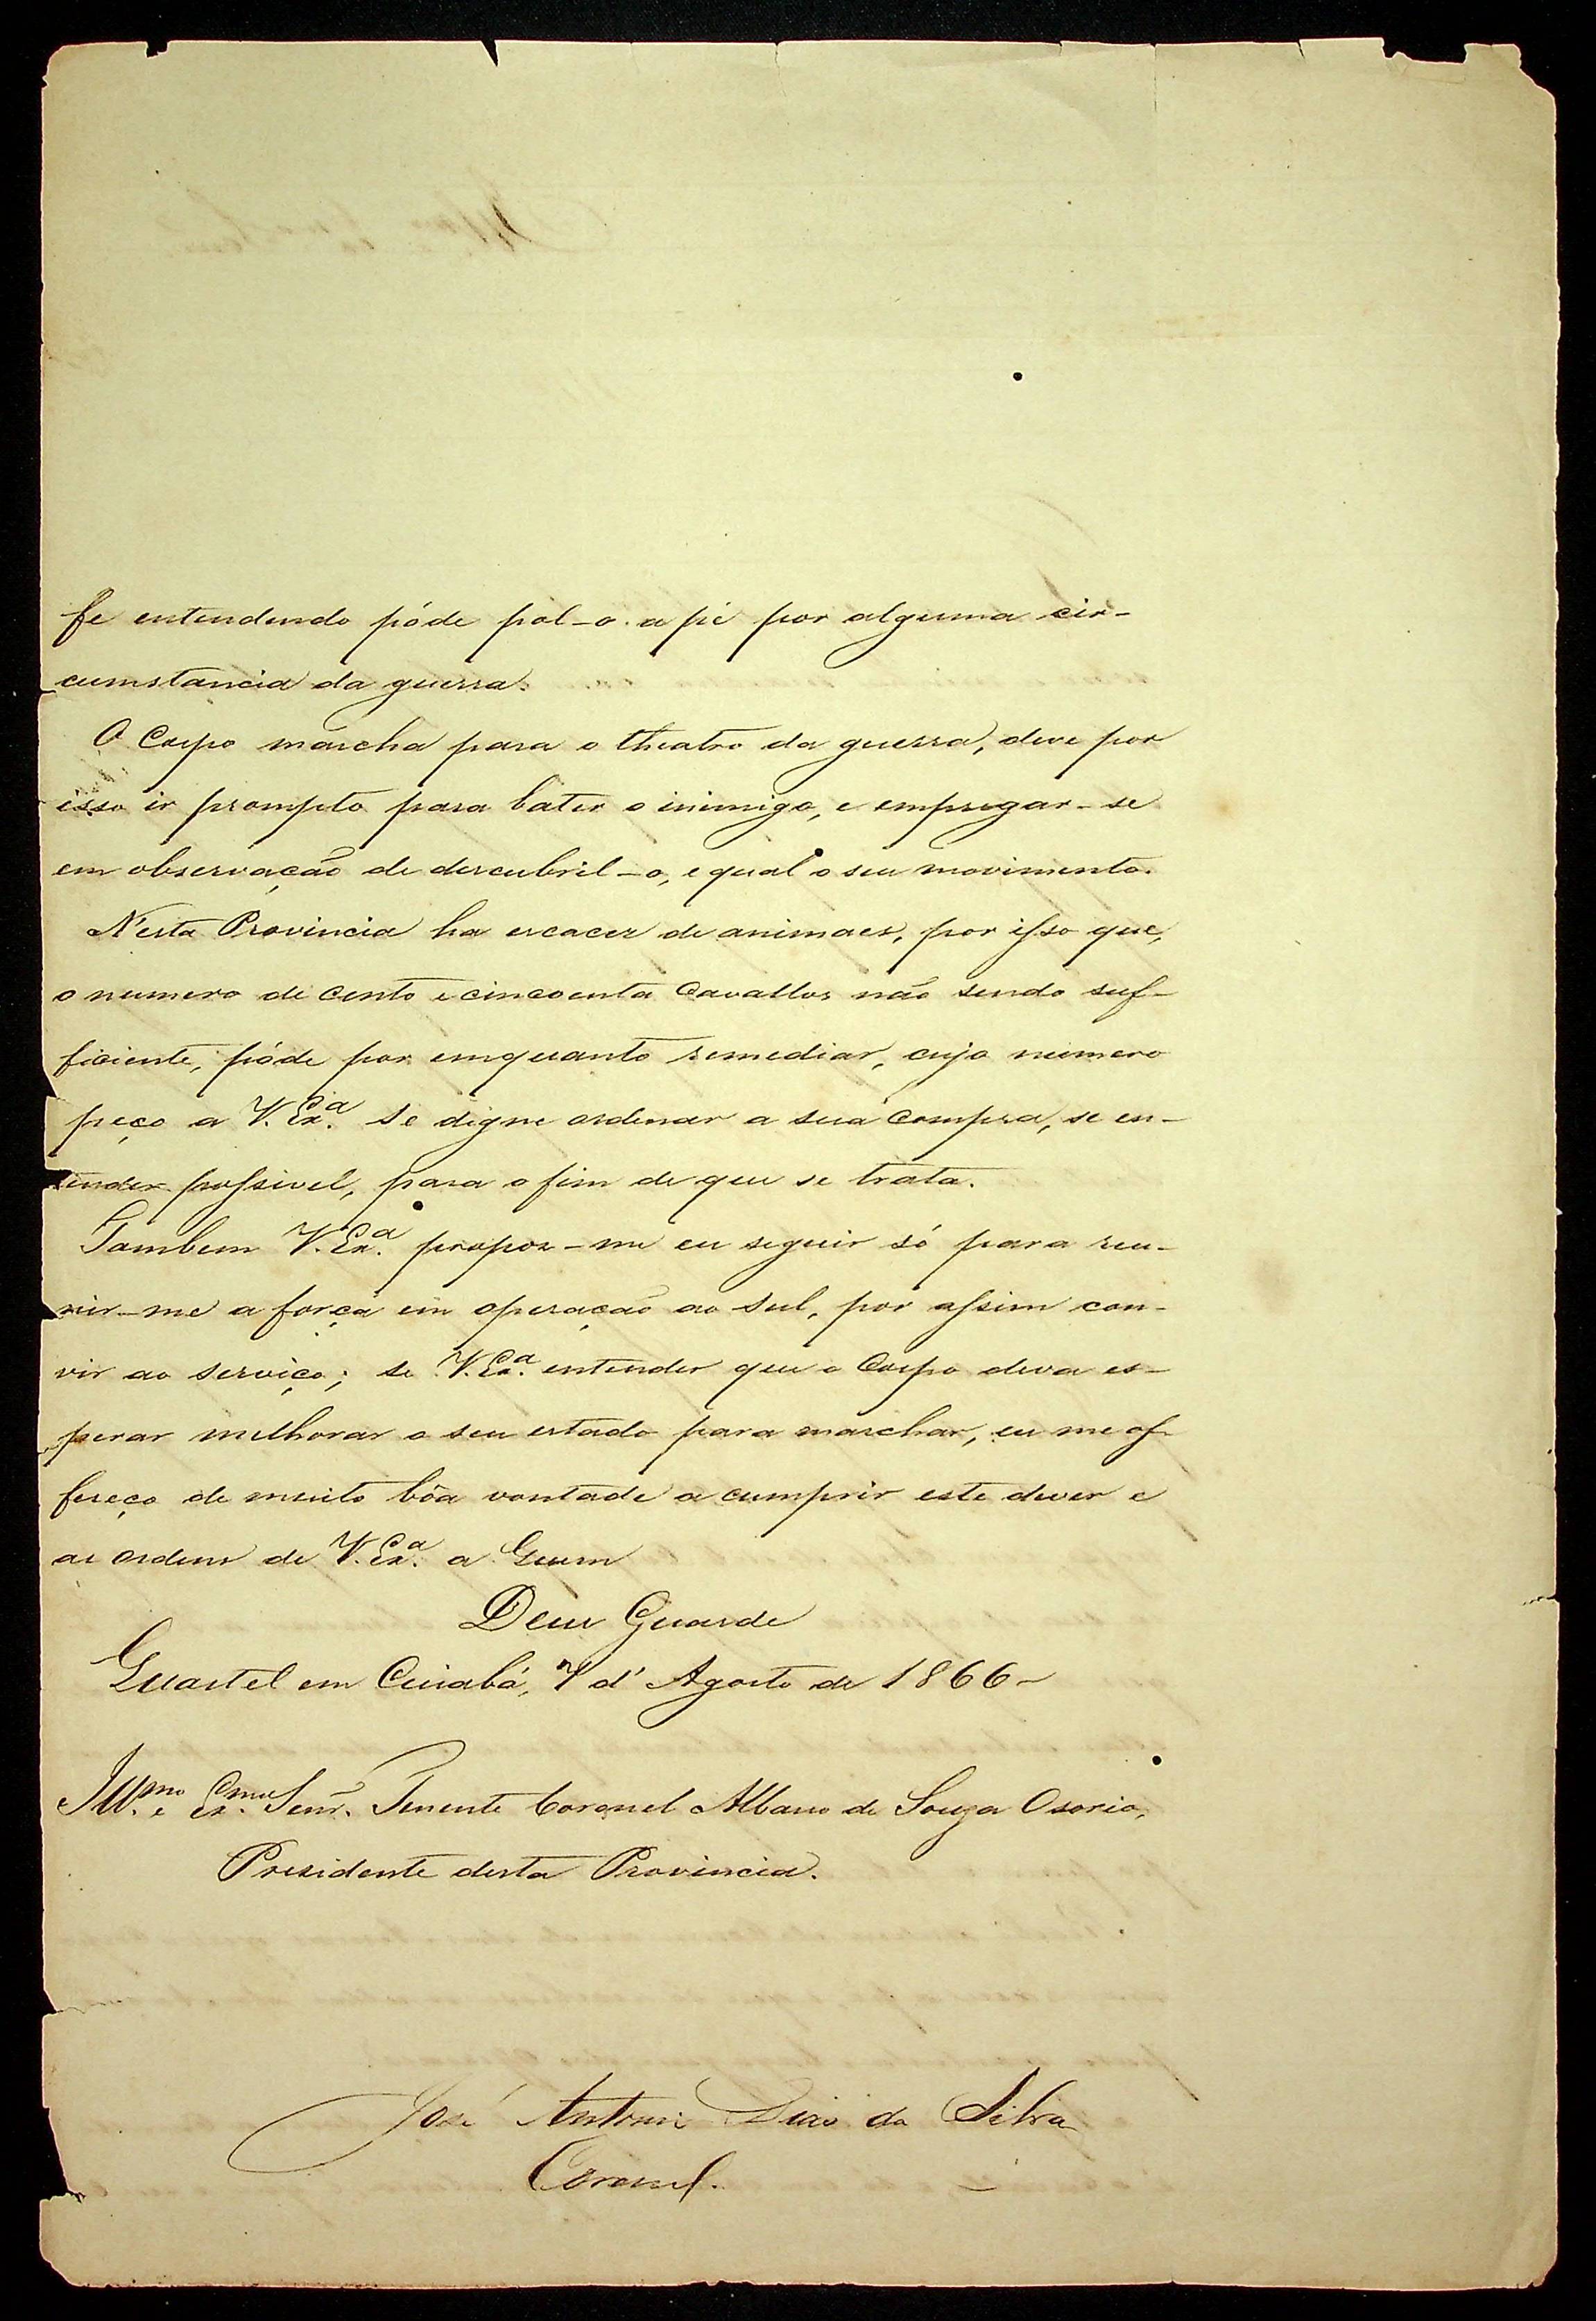 fe entendendo póde pol-o a pé por alguma cir-
cumstancia da guerra.
O Corpo marcha para o theatro da guerra, deve por
isso ir prompto para bater o inimigo, e empregar-se
em observação de descubril-o, e qual o seu movimento.
N'esta Provincia ha escacez de animaes, por isso que,
o numero de cento e cincoenta Cavallos não sendo suf-
ficiente, póde por emquanto remediar, cujo numero
peço a V. Exª. se digne ordenar a sua compra, se en-
tender possivel, para o fim de que se trata.
Tambem V. Exª. propoz-me eu seguir só para reu-
nir-me a força em operação ao Sul, por assim con-
vir ao serviço; se V. Exª. entender que o Corpo deva es-
perar melhorar o seu estado para marchar, eu me of-
fereço de muito bôa vontade a cumprir este dever e
as ordens de V. Exª. a Quem
Deus Guarde
Quartel em Cuiabá, 7 d'Agosto de 1866-
Illmo. e Exmo. Senr. Tenente Coronel Albano de Souza Osorio,
Presidente desta Provincia.
José Antonio Dias da Silva
Coronel.